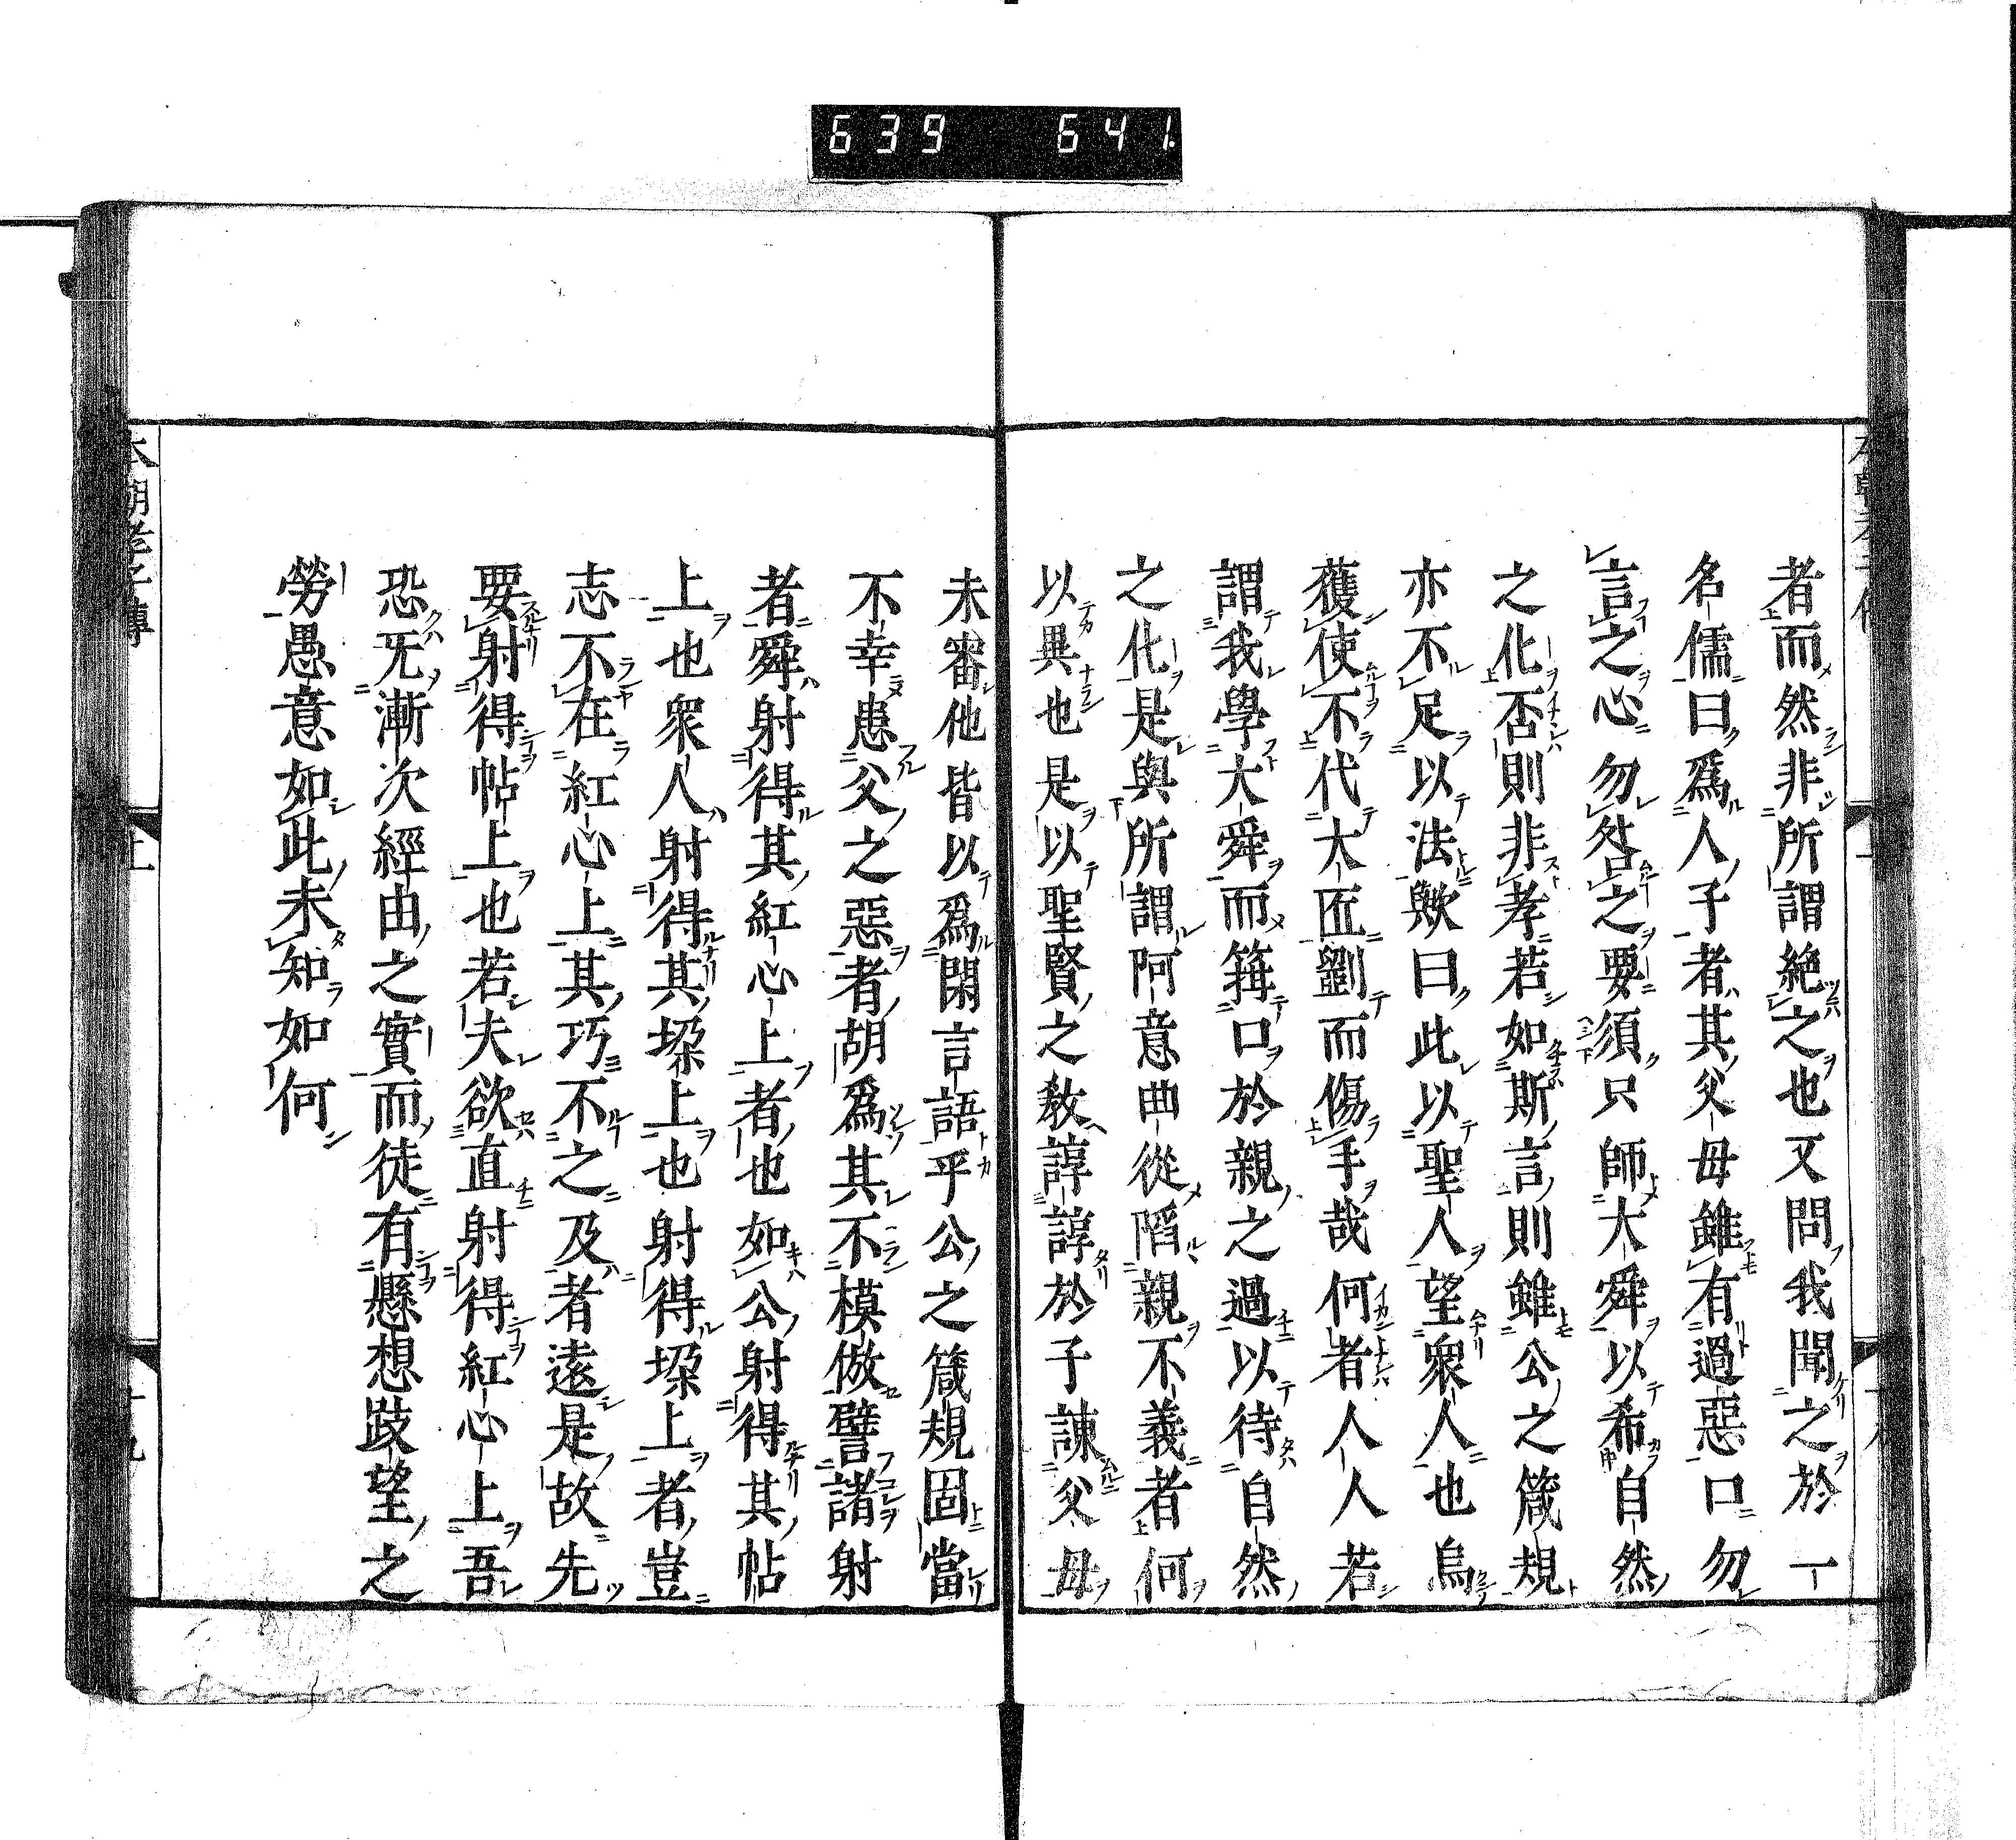 639 641.
者而然非所謂絶之也又問我聞之於一
名儒曰爲人子者其父母雖有過惡口勿
言之心勿咎之要須只師大舜以希自然
之化否則非孝若如斯言則雖公之箴規
亦不足以法歟曰此以聖人望衆人也烏
獲使不代大匠劉而傷手哉何者人人若
謂我學大舜而箝口於親之過以待自然
之化是與所謂阿意曲從陷親不義者何
以異也是以聖賢之敎諄諄於子諫父母
未審他皆以爲閑言語乎公之箴規固當
不幸患父之惡者胡爲其不模倣譬諸射
者舜射得其紅心上者也如公射得其帖
上也衆人射得其垜上也射得垜上者豈
志不在紅心上其巧不之及者遠是故先
要射得帖上也若夫欲直射得紅心上吾
恐旡漸次經由之實而徒有懸想跂望之
勞愚意如此未知如何
本朝孝子傳